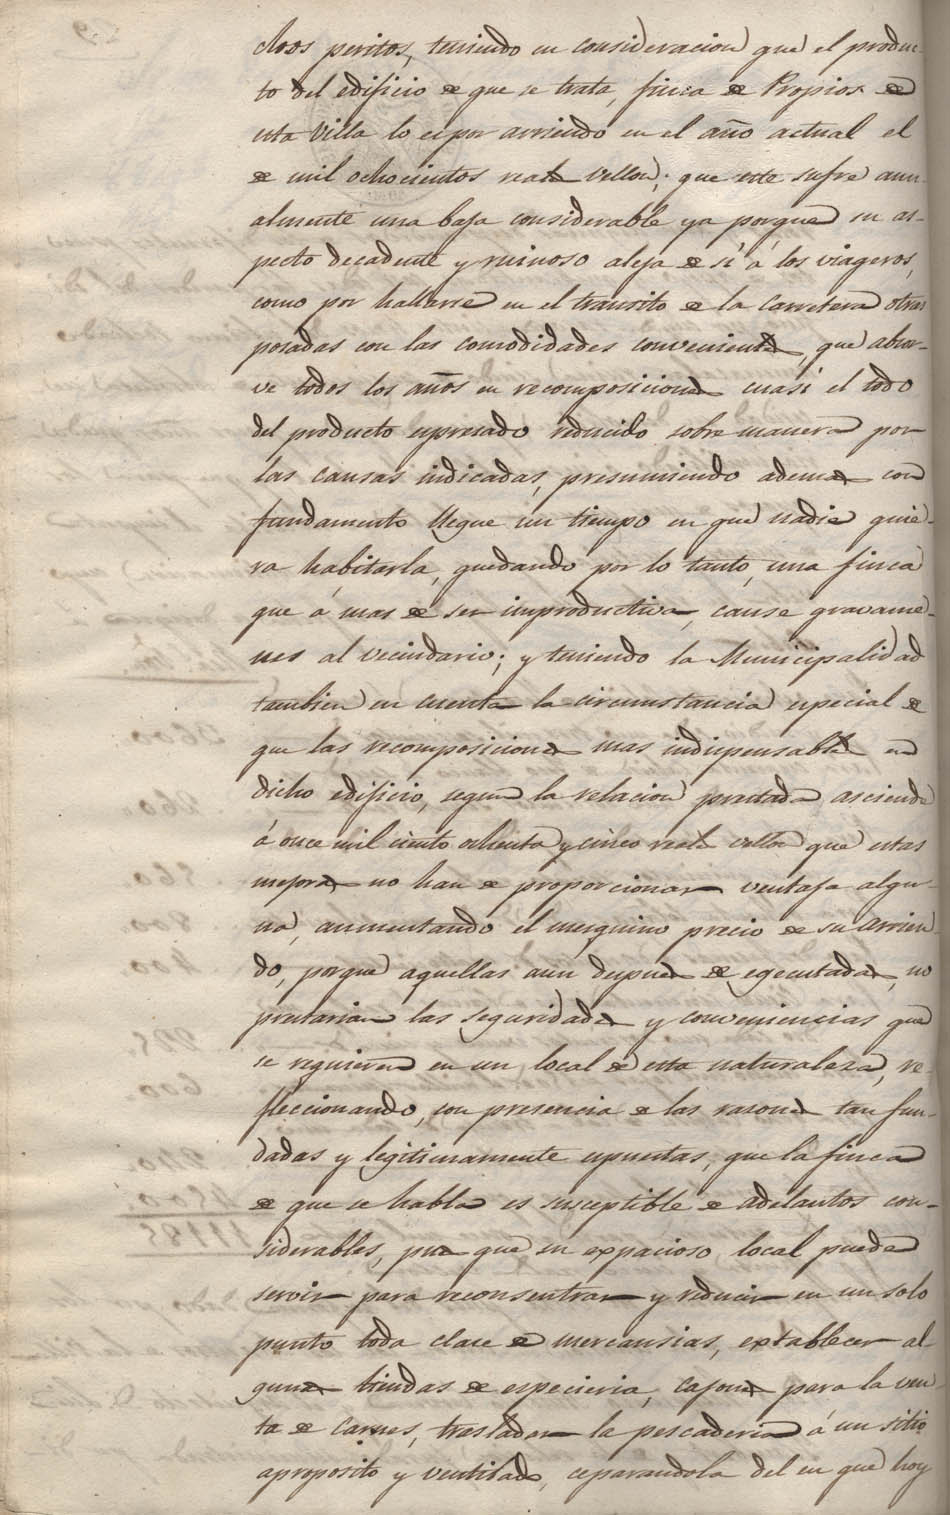 chos peritos, teniendo en consideracion que el produc-
to del edificio de que se trata, finca de Propios de
esta Villa lo es por arriendo en el año actual el
de mil ochocientos reales vellon; que este sufre anu-
almente una baja considerable ya porque su as-
pecto decadente y ruinoso aleja de sí á los viageros,
como por hallarse en el transito de la Carretera otras
posadas con las comodidades convenientes, que absor-
ve todos los años en recomposiciones cuasi el todo
del producto espresado reducido sobre manera por
las causas indicadas, presumiendo ademas con
fundamento llegue un tiempo en que nadie quie-
ra habitarla, quedando por lo tanto, una finca
que á mas de ser improductiva, cause gravame-
nes al vecindario; y teniendo la Municipalidad
tambien en cuenta la circumstancia especial de
que las recomposiciones mas indispensables en
dicho edificio, segun la relacion prestada asciende
á once mil ciento ochenta y cinco reales vellon que estas
mejoras no han de proporcionar ventaja algu-
na, aumentando el mezquino precio de su arrien-
do, porque aquellas aun despues de egecutadas, no
prestarian las seguridades y conveniencias que
se requieren en un local de esta naturaleza, re-
fleccionando, con presencia de las razones tan fun-
dadas y legitimamente espuestas, que la finca
de que se habla es susceptible de adelantos con-
siderables, pues que su expacioso local puede
servir para reconsentrar y reducir en un solo
punto toda clase de mercansias, extablecer al-
gunas tiendas de especieria, cajones para la ven-
ta de carnes, trasladar la pescaderia á un sitio
aproposito y ventilado, ceparandola del en que hoy